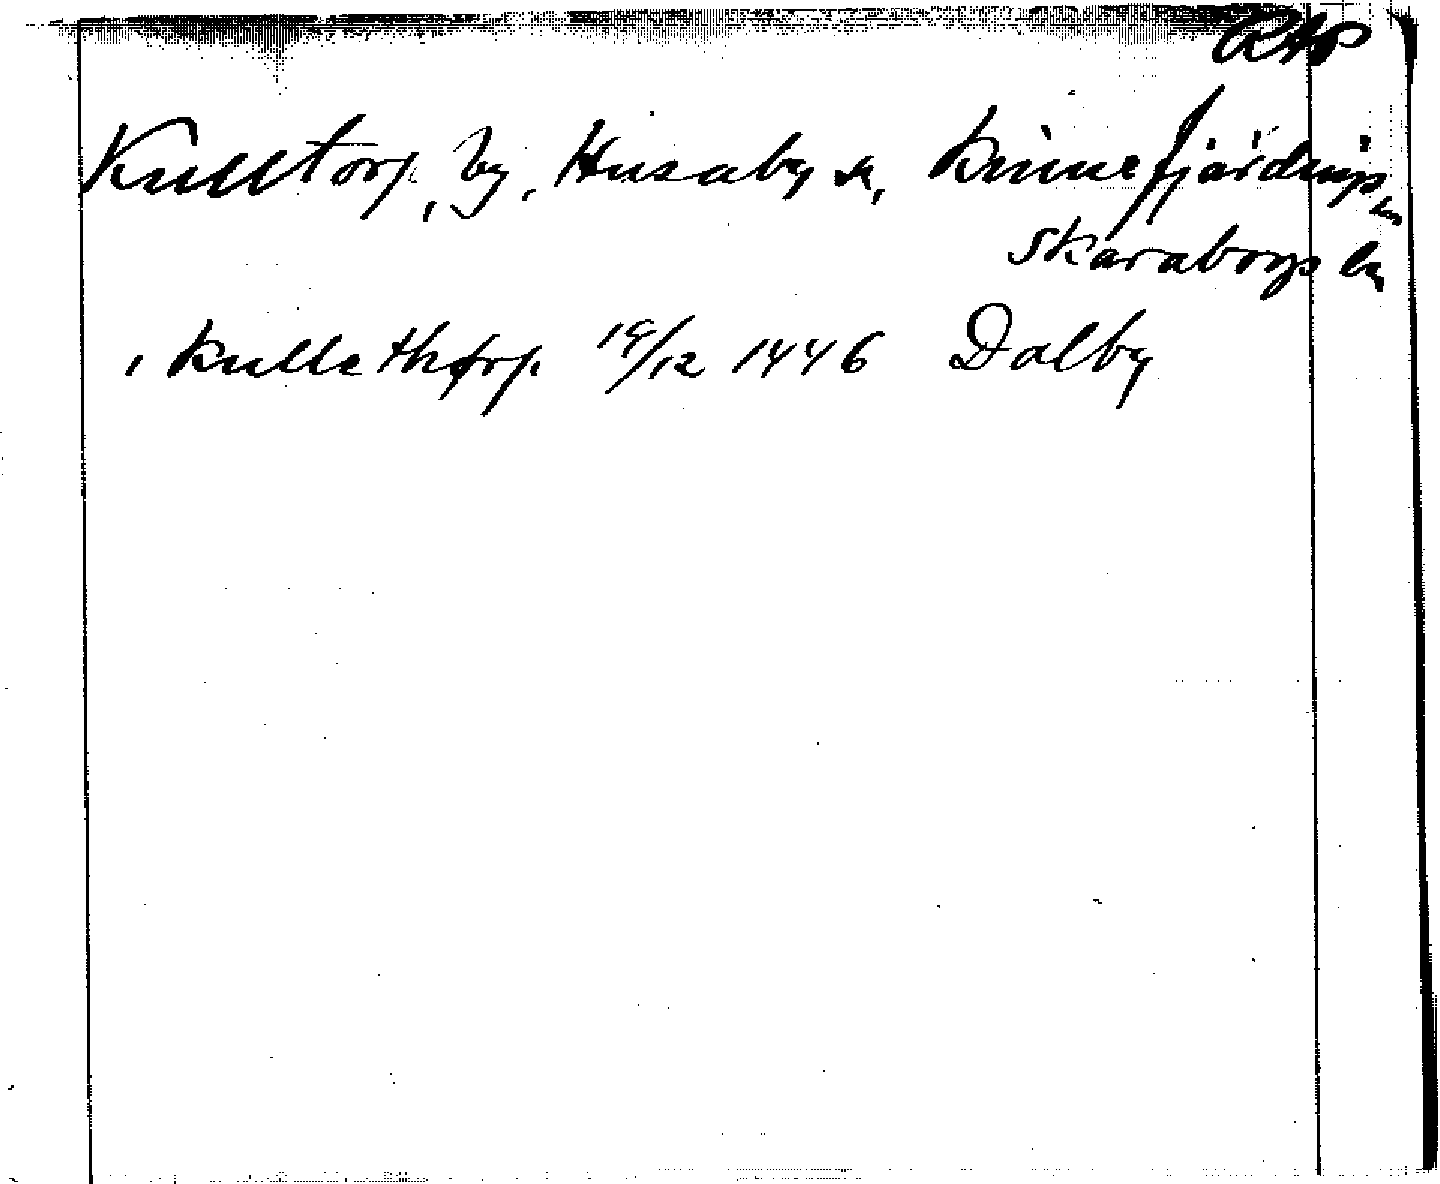 RAP
Kulltorp, by, Husaby sn, Kinnefjärdings
Skaraborgs län
i kullethørp 19/12 1446 Dalby